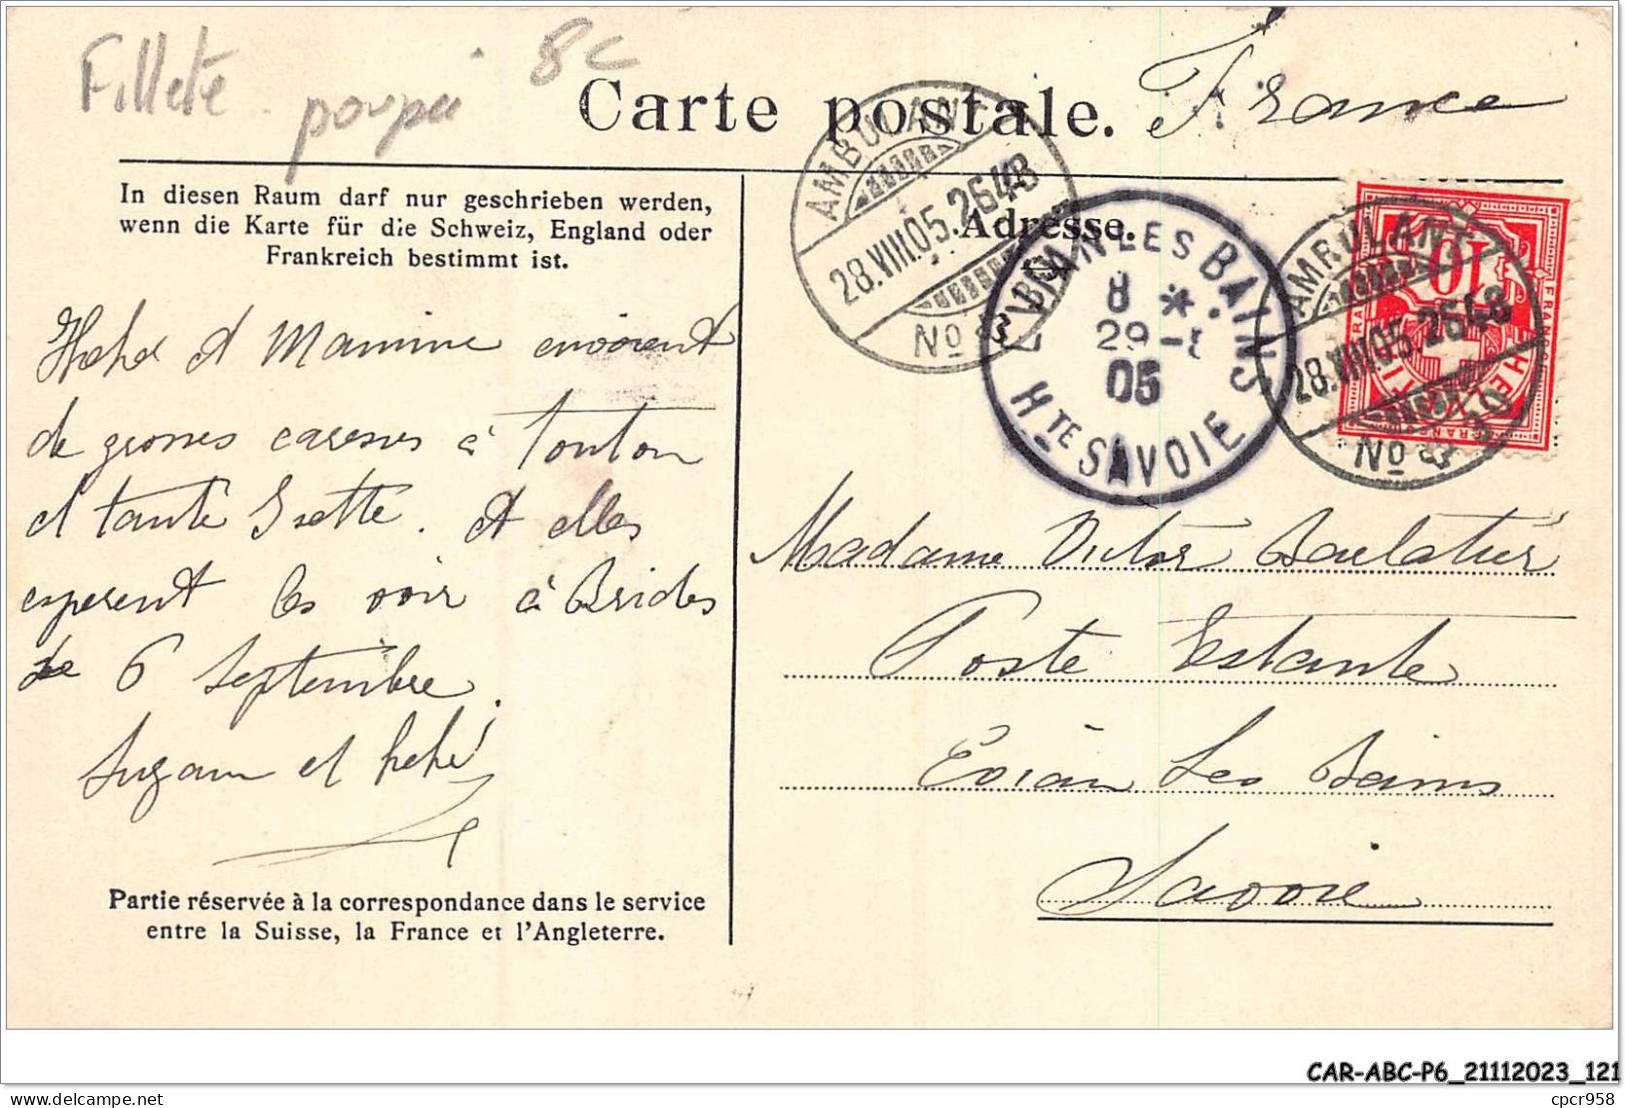 Fillete poupée 8c
France
Carte postale.
In diesen Raum darf nur geschrieben werden,
wenn die Karte für die Schweiz, England oder
Frankreich bestimmt ist.
Adresse.
AMBULANT
28.VIII.05.2648
No
EVIAN LES BAINS
8 *
29-8
05
HTE SAVOIE
AMBULANT
28.VIII.05.2648
No
10
HELVETIA
FRANCO
et Mamine envoient
de grosses caresses à Tonton
et tante Zette. et elles
esperent les voir à Brides
le 6 Septembre.
Suzann et hehé
Madame Victor
Poste Restante
Evian Les Bains
Savoie
Partie réservée à la correspondance dans le service
entre la Suisse, la France et l'Angleterre.
CAR-ABC-P6_21112023_121
delcampe.net
cpcr958